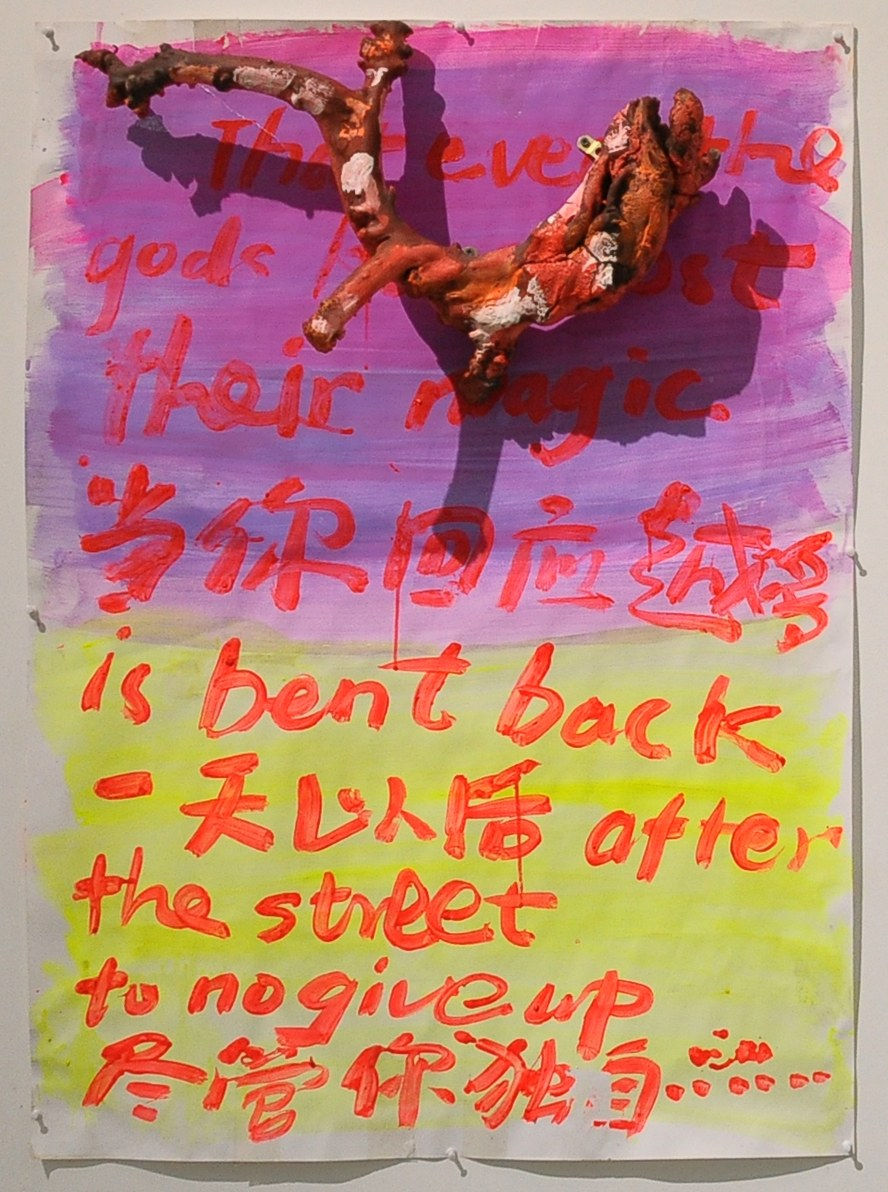 That even the
gods lost
their magic.
当你回应越壕
is bent back
一天以后 after
the street
to no give up
尽管你独自……